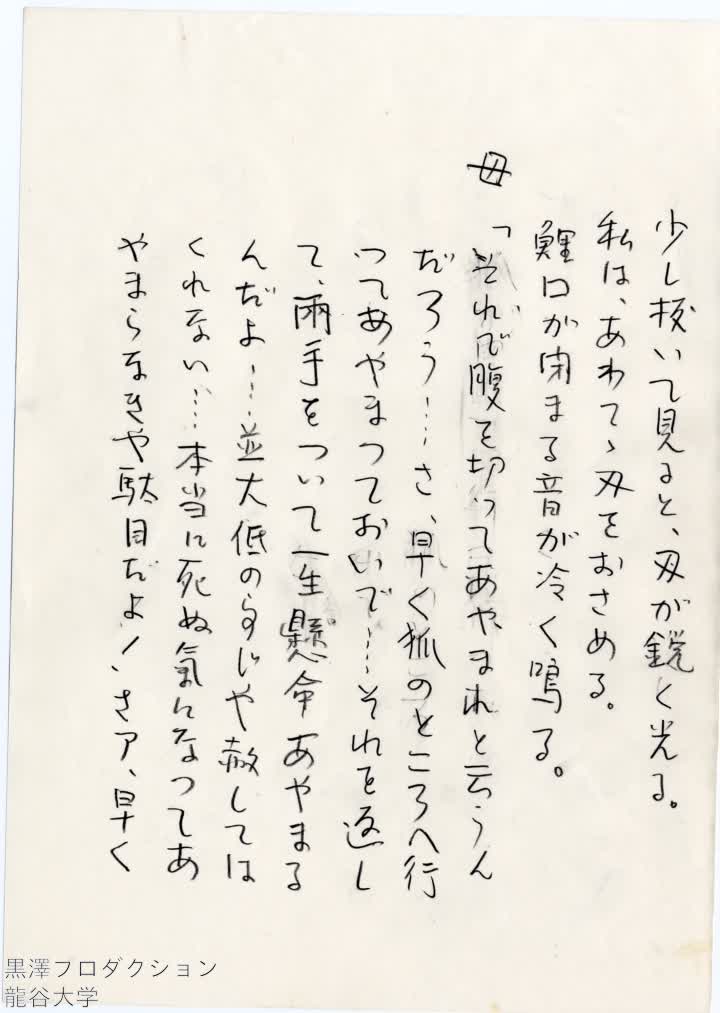 少し抜いて見ると、刃が鋭く光る。
私は、あわてゝ刃をおさめる。
鯉口が閉まる音が冷く鳴る。
母「それで腹を切ってあやまれと云うん
だろう……さ、早く狐のところへ行
つてあやまつておいで……それを返し
て、兩手をついて一生懸命あやまる
んだよ……並大低の事じや赦しては
くれない……本当に死ぬ氣になつてあ
やまらなきや駄目だよ！さア、早く
黒澤プロダクション
龍谷大学